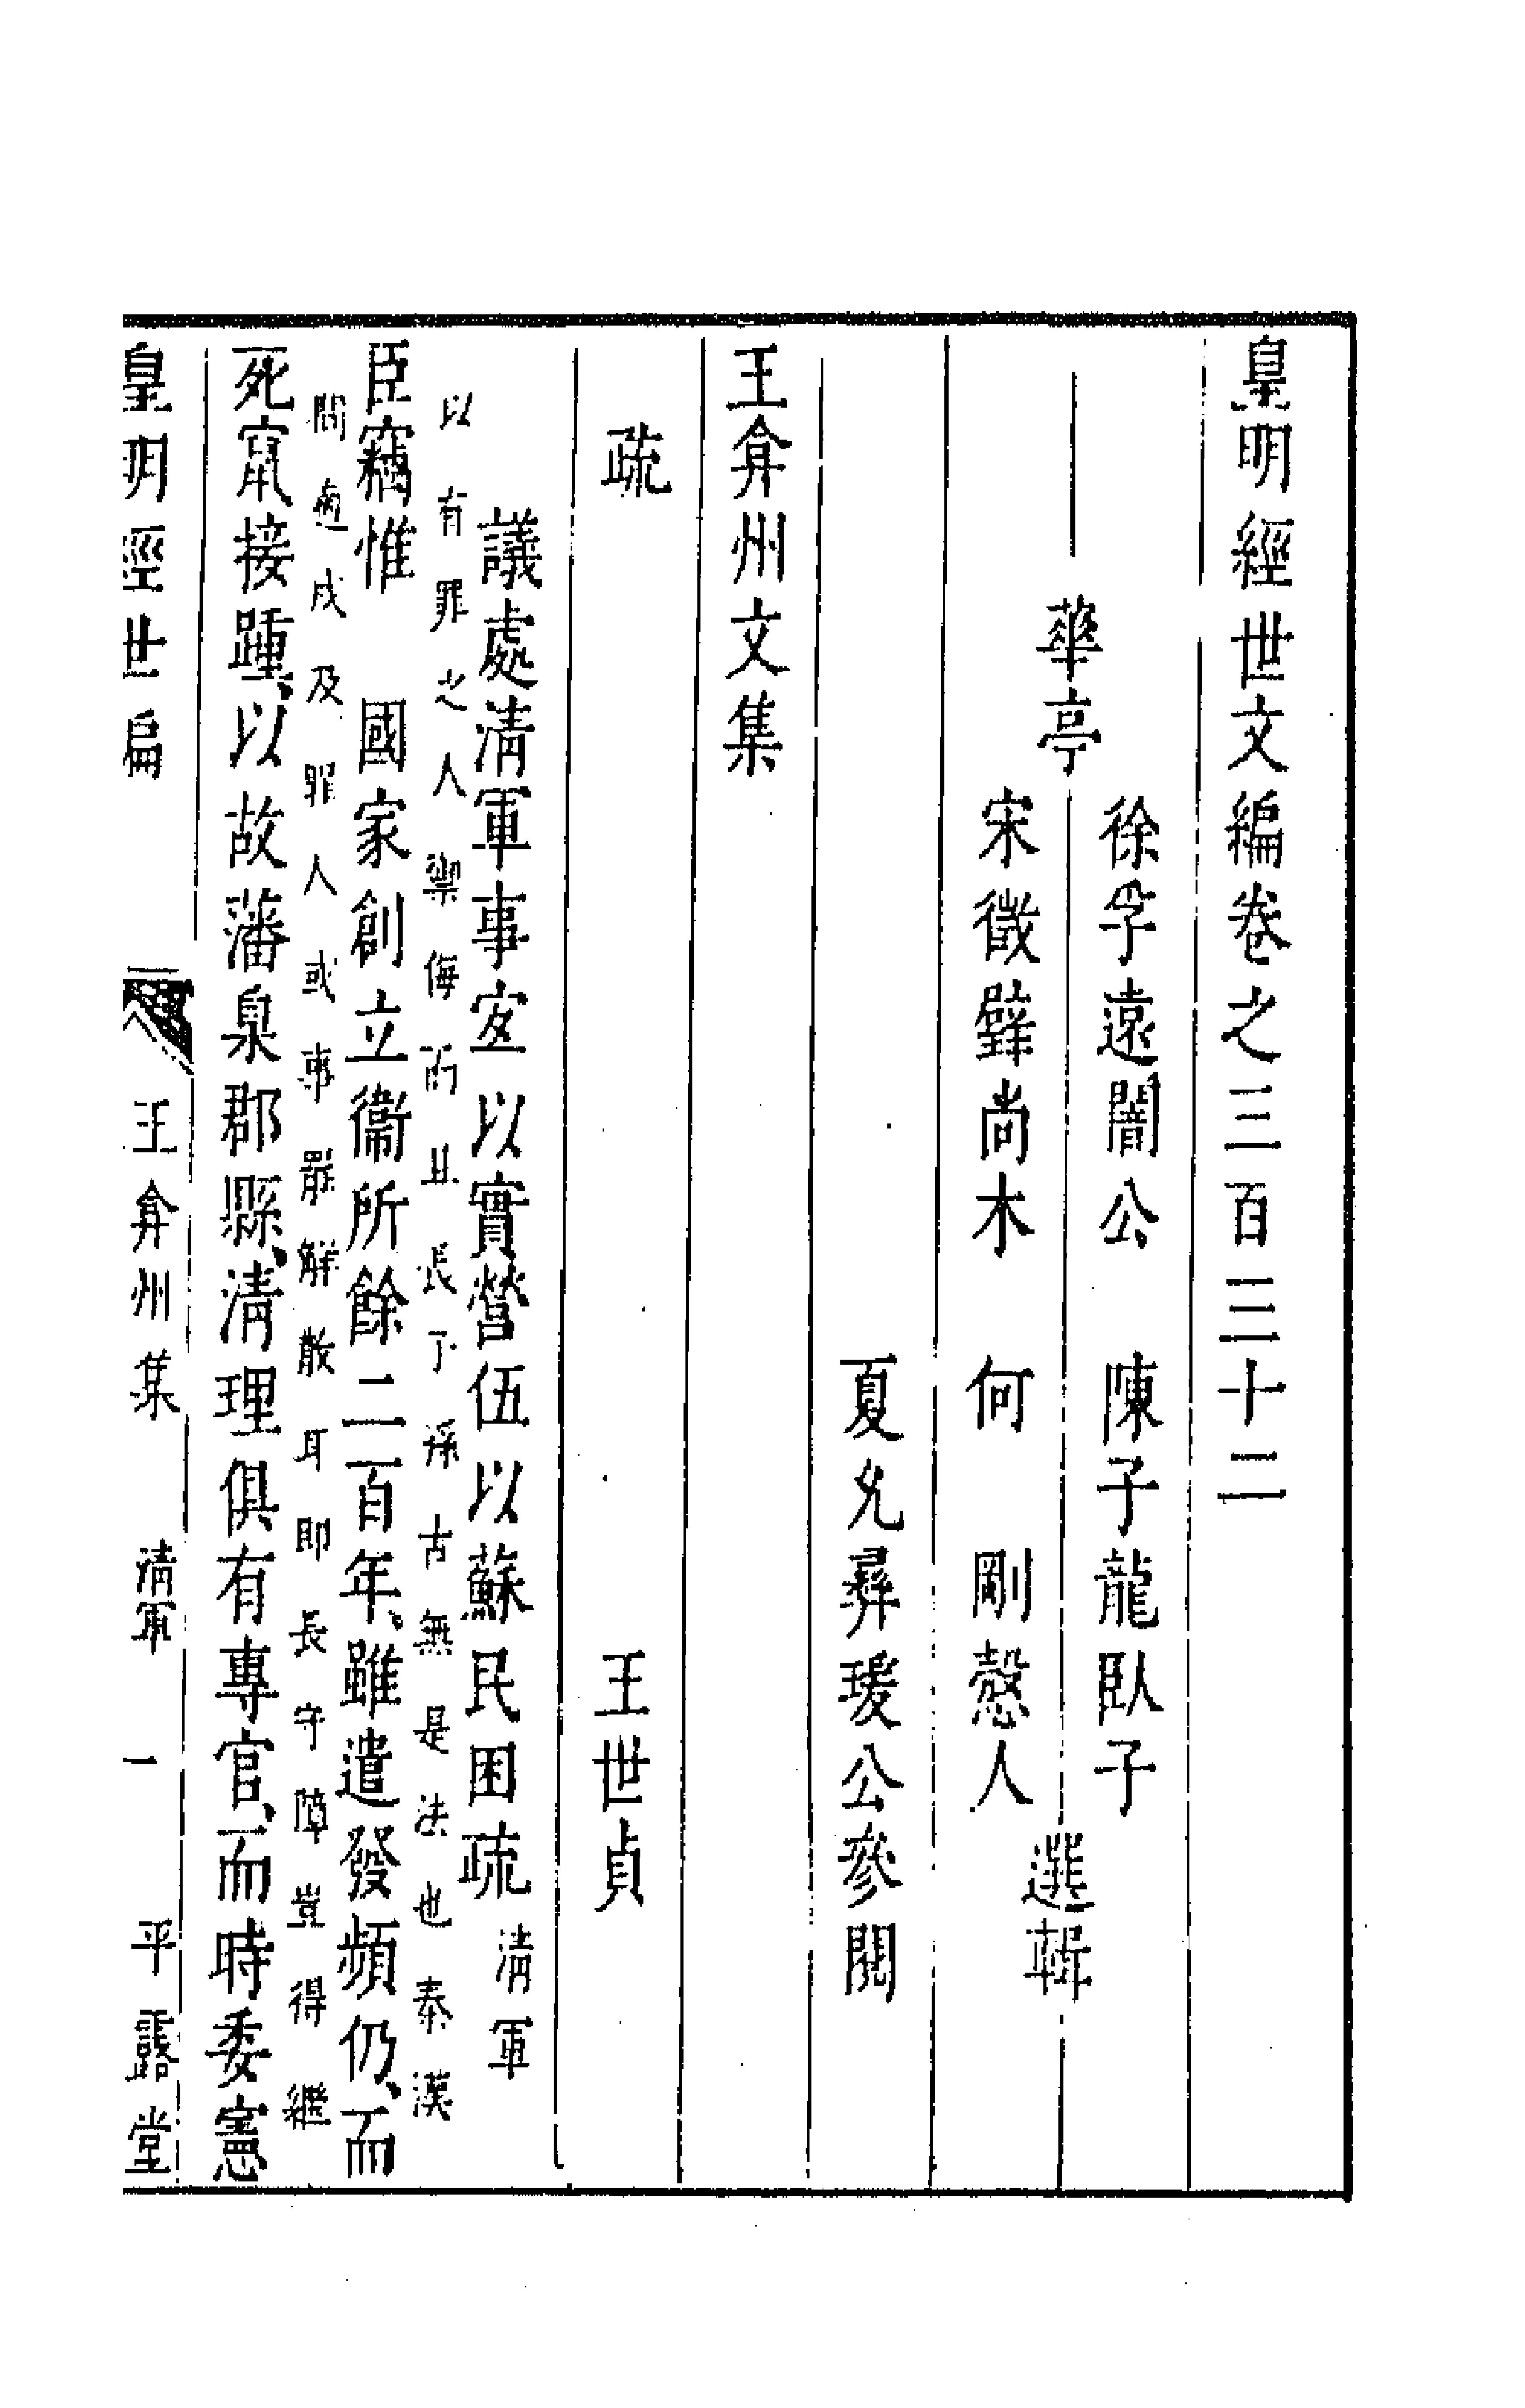 皇明經世文編卷之三百三十二
華亭
徐孚遠闇公　陳子龍臥子
宋徵璧尚木　何　剛愨人
選輯
夏允彝瑗公參閱
王弇州文集
疏
王世貞
議處清軍事宜以實營伍以蘇民困疏 清軍
以有罪之人禦侮而且長子孫古無是法也秦漢
臣竊惟　國家創立衞所餘二百年、雖遣發頻仍、而
間適戍及罪人或事罷解散耳即長守障豈得繼
死竄接踵、以故藩臬郡縣、清理俱有專官、而時委憲
皇明經世編　王弇州集　清軍　一　平露堂